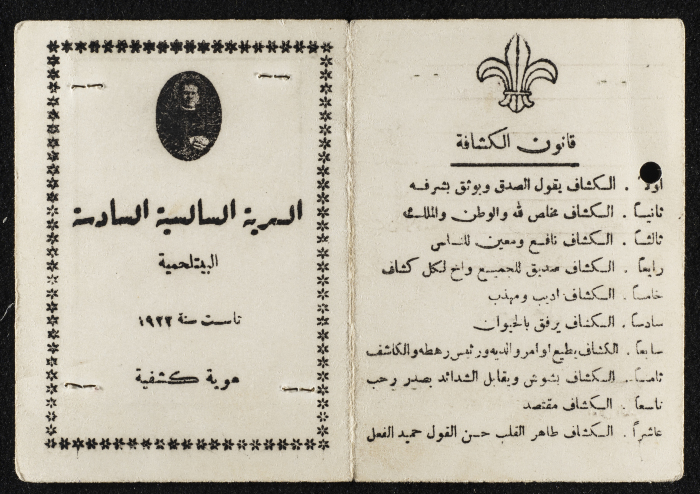 قانون الكشافة
اولاً . الكشاف يقول الصدق ويوثق بشرفه
ثانيـاً . الكشاف مخلص لله والوطن والملك
ثالثـاً . الكشاف نافع ومعين للناس
رابعاً . الكشاف صديق للجميع واخ لكل كشاف
خامساً . الكشاف اديب ومهذب
سادساً . الكشاف يرفق بالحيوان
سابعاً . الكشاف يطيع اوامر والديه ورئيس رهطه والكاشف
ثامنـاً . الكشاف بشوش ويقابل الشدائد بصدر رحب
تاسعاً . الكشاف مقتصد
عاشراً . الكشاف طاهر القلب حسن القول حميد الفعل
السرية السالسية السادسة
البيتلحمية
تاسست سنة ١٩٢٢
هوية كشفية